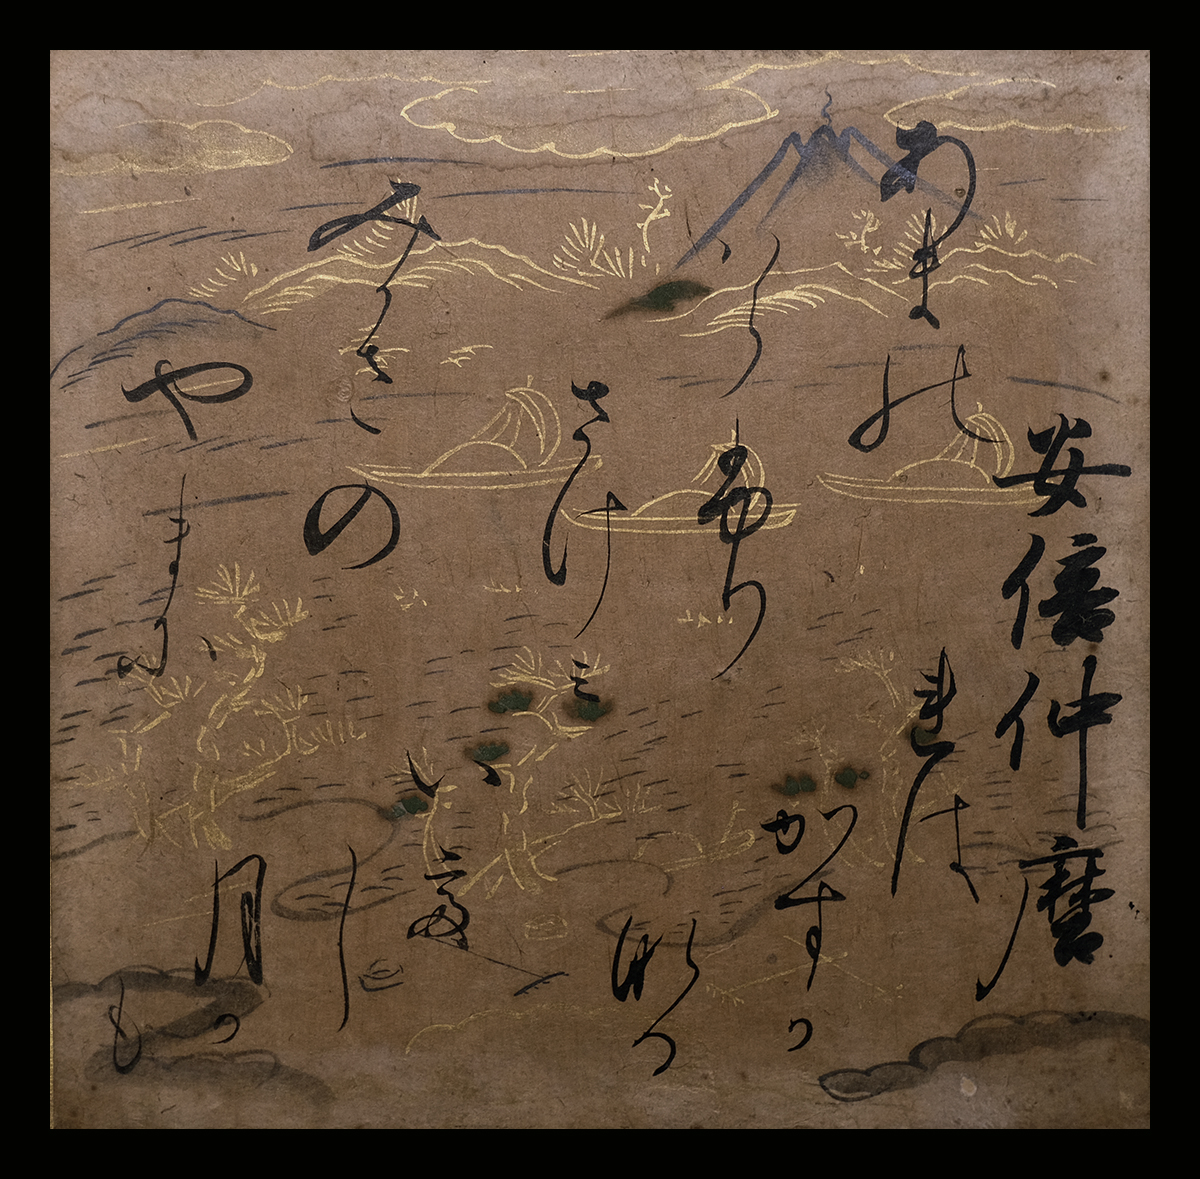 安倍仲麿
あまの
はらふり
さけミ
れは
かすか
なる
みかさの
やまに
いて
し
月か
も